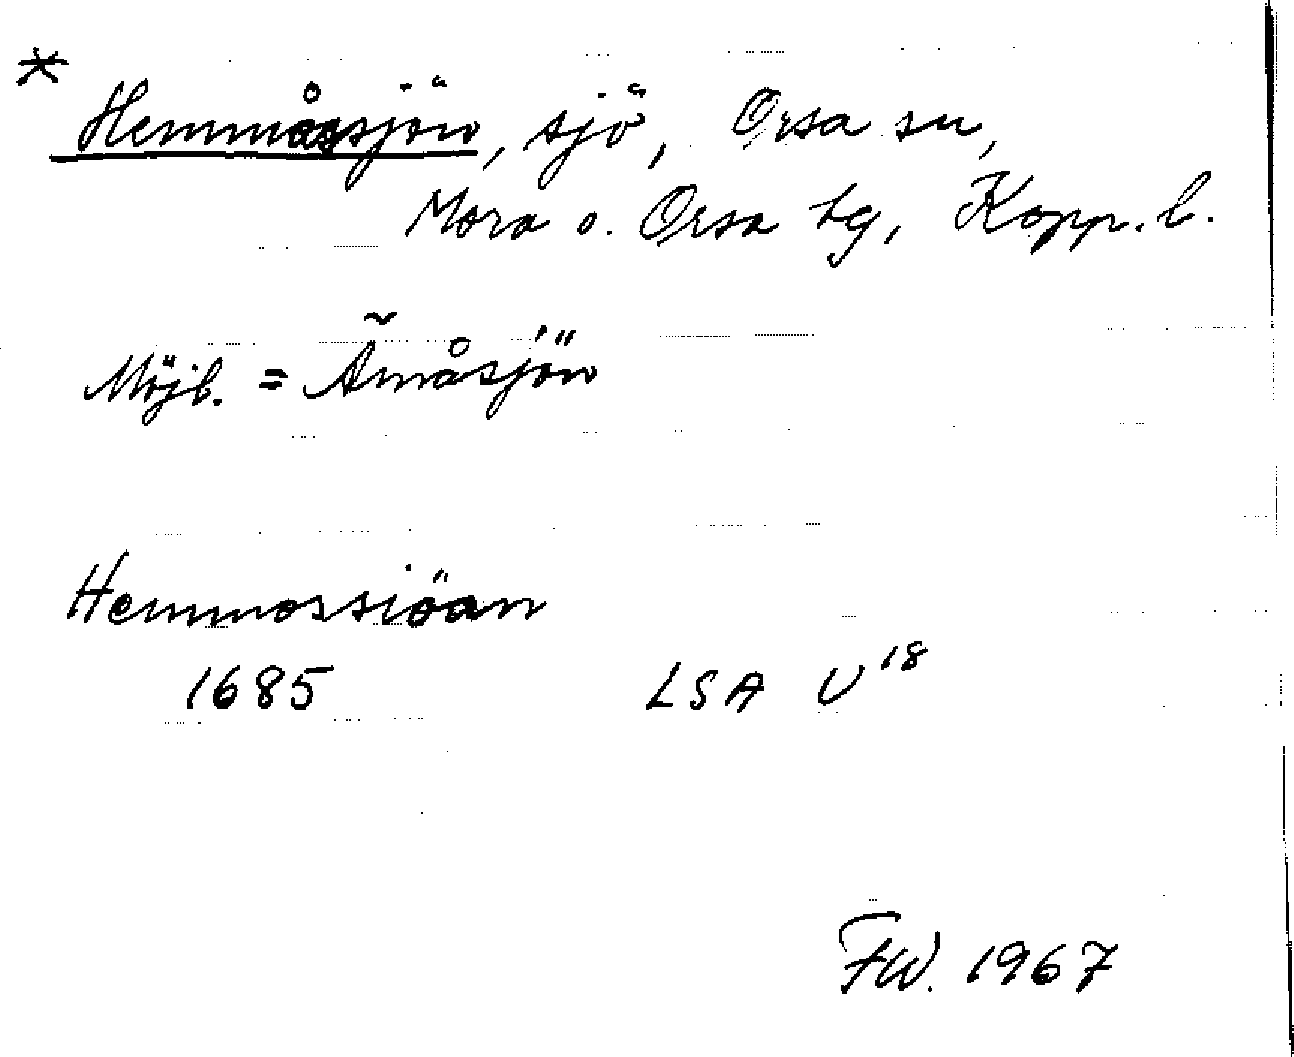 * Hemmåssjön, sjö, Orsa sn,
Mora o. Orsa tg, Kopp. l.
Möjl. = Ämåsjön
Hemmossiöan
1685 LSA U¹⁸
FW. 1967